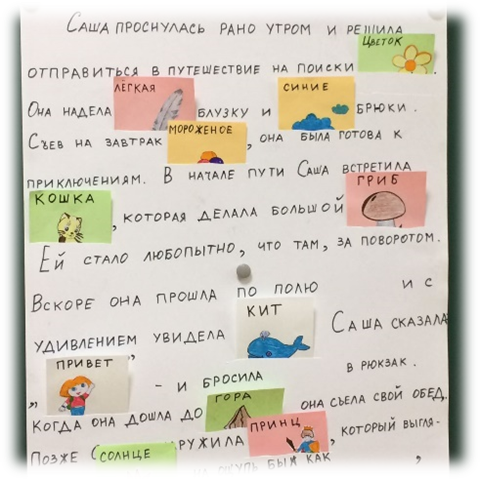 САША ПРОСНУЛАСЬ РАНО УТРОМ И РЕШИЛА
ОТПРАВИТЬСЯ В ПУТЕШЕСТВИЕ НА ПОИСКИ ЦВЕТОК.
ОНА НАДЕЛА ЛЁГКАЯ БЛУЗКУ И СИНИЕ БРЮКИ.
СЪЕВ НА ЗАВТРАК МОРОЖЕНОЕ, ОНА БЫЛА ГОТОВА К
ПРИКЛЮЧЕНИЯМ. В НАЧАЛЕ ПУТИ САША ВСТРЕТИЛА
КОШКА, КОТОРАЯ ДЕЛАЛА БОЛЬШОЙ ГРИБ
ЕЙ СТАЛО ЛЮБОПЫТНО, ЧТО ТАМ, ЗА ПОВОРОТОМ.
ВСКОРЕ ОНА ПРОШЛА ПО ПОЛЮ И С
УДИВЛЕНИЕМ УВИДЕЛА КИТ САША СКАЗАЛА
„ПРИВЕТ" - И БРОСИЛА В РЮКЗАК.
КОГДА ОНА ДОШЛА ДО ГОРА ОНА СЪЕЛА СВОЙ ОБЕД.
ПОЗЖЕ С РУЖИЛА ПРИНЦ, КОТОРЫЙ ВЫГЛЯ-
СОЛНЦЕ КАК ,